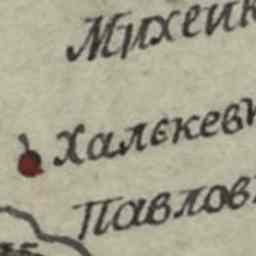 Михеик
Халєкеви
Павлов